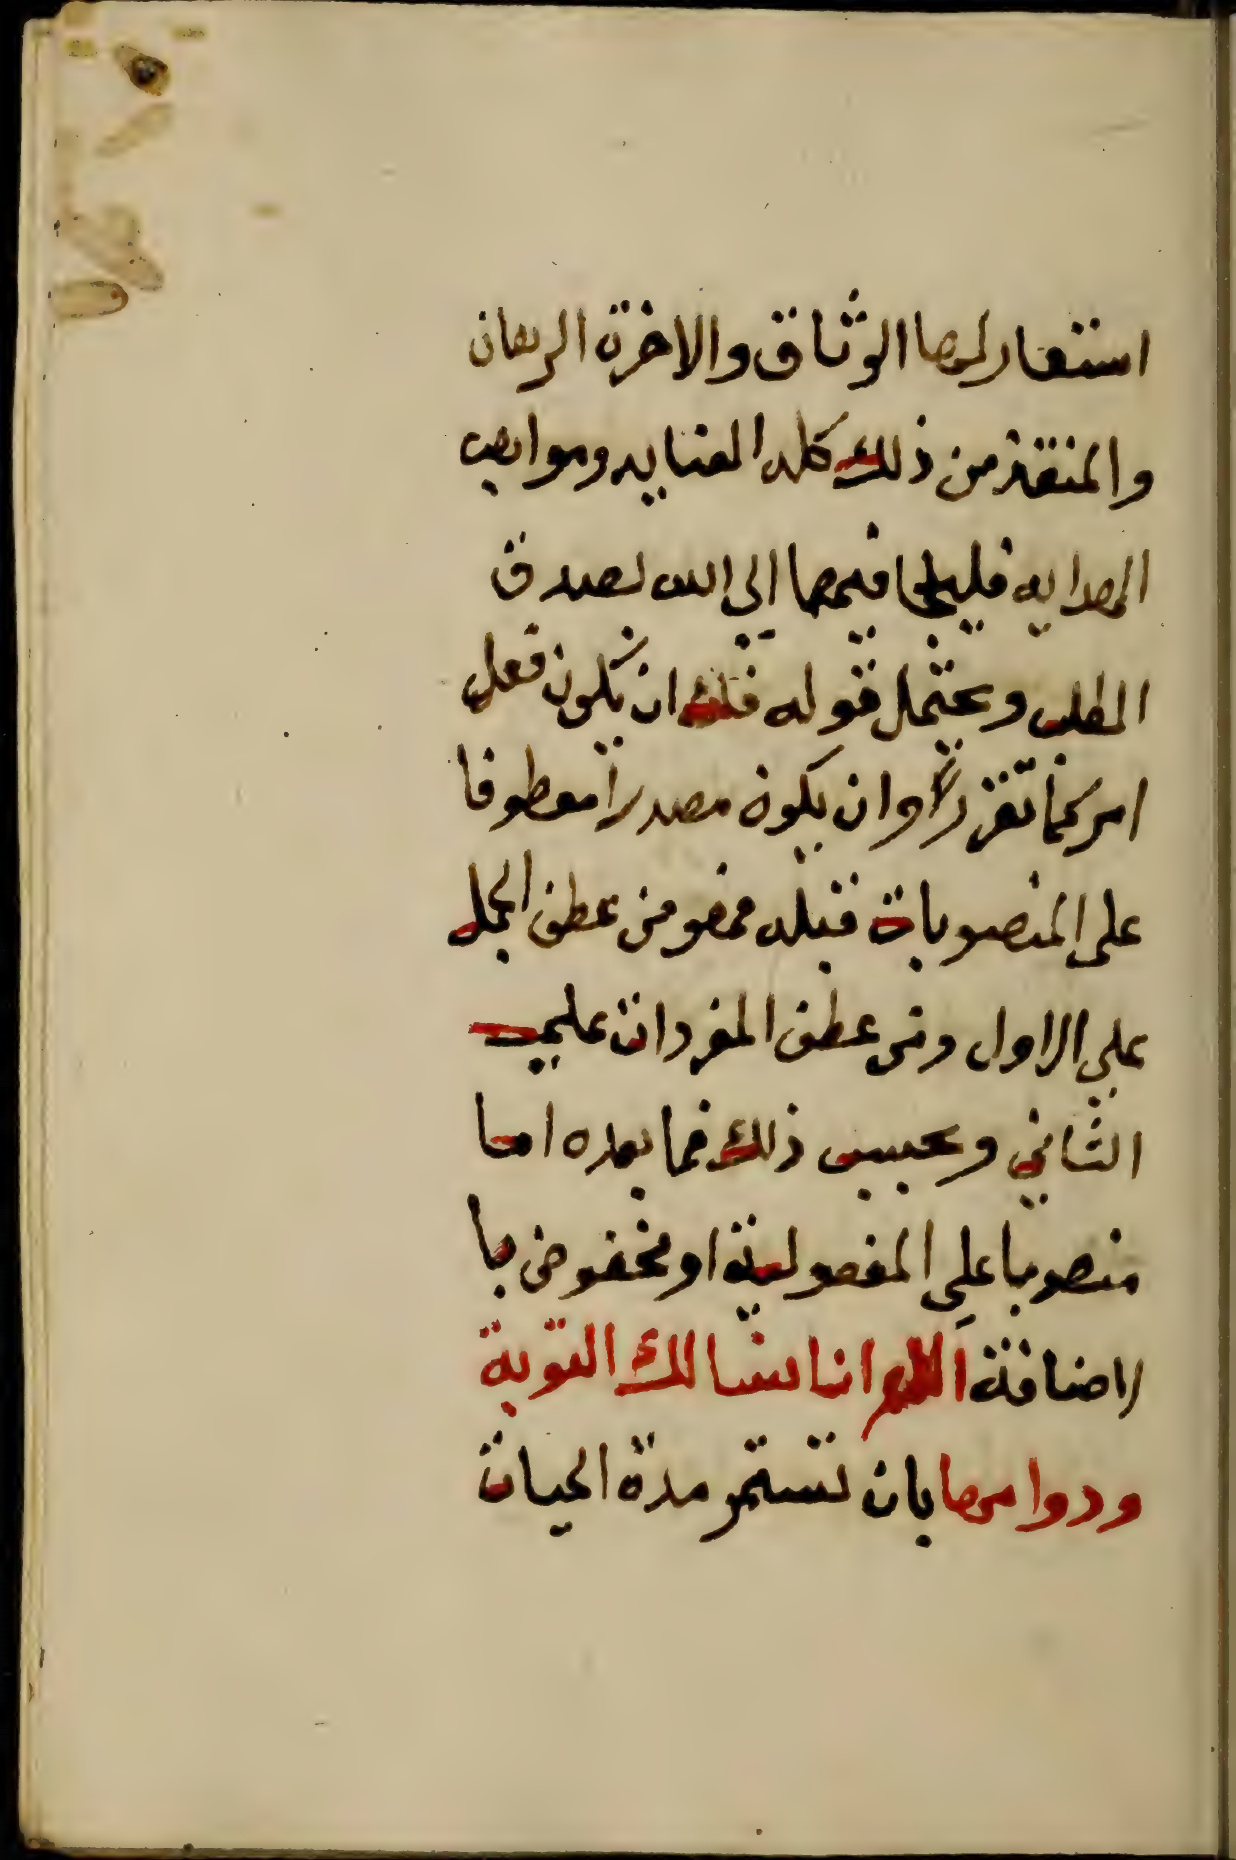 استعار لها الوثاق والاخرة الرهان
والمنقذ من ذلك كله العنايه ومواهب
الهدايه فليلجا فيهما الي الله بصدق
الطلب ويحتمل قوله فك ان يكون فعل
امر كما تقرر اولا وان يكون مصدرا معطوفا
على المنصوبات قبله فهو من عطف الجمل
علي الاول ومن عطف المفردات علي
الثاني وبحسب ذلك فما بعده اما
منصوبا علي المفعولية او مخفوض با
لاضافة اللهم انا نسالك التوبة
ودوامها بان تستمر مدة الحيات